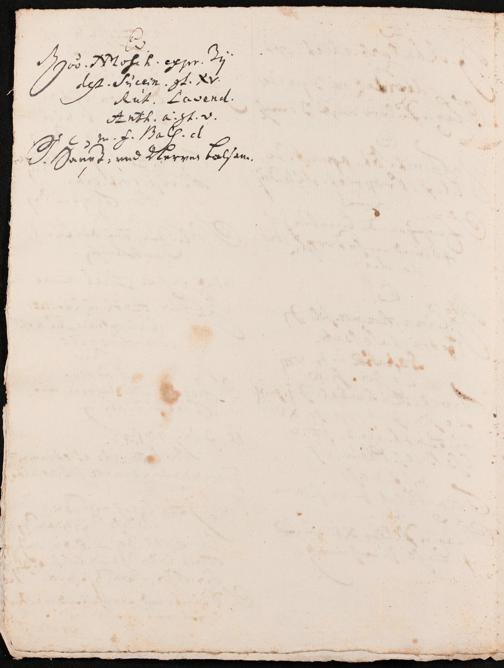 Eo.
℞ ov. Mosch. expr. ʒij
dest. Succin. gt. XV.
Rut. Lavend.
Anth. a. gt. v.
m. f. Bals. d
S. Haupt, und Nerven balsam.